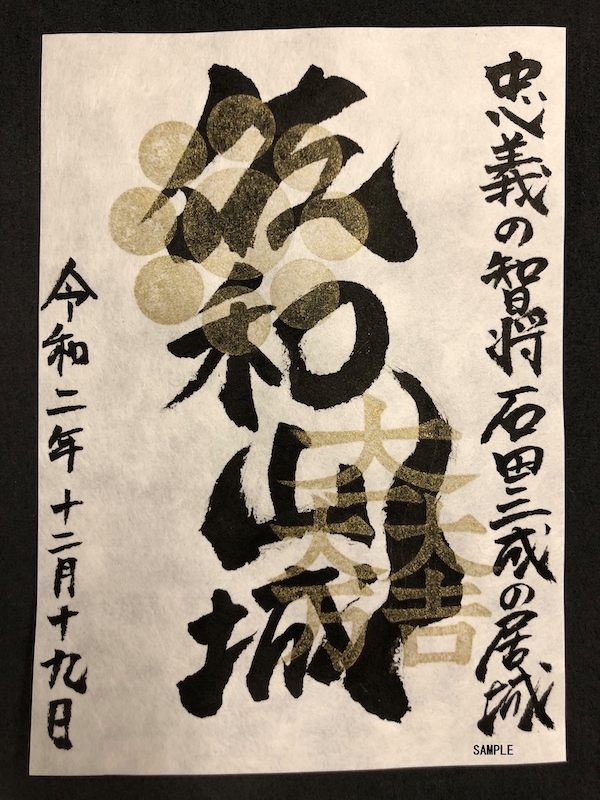 忠義の智将 石田三成の居城
佐和山城
大一大万大吉
令和二年十二月十九日
SAMPLE